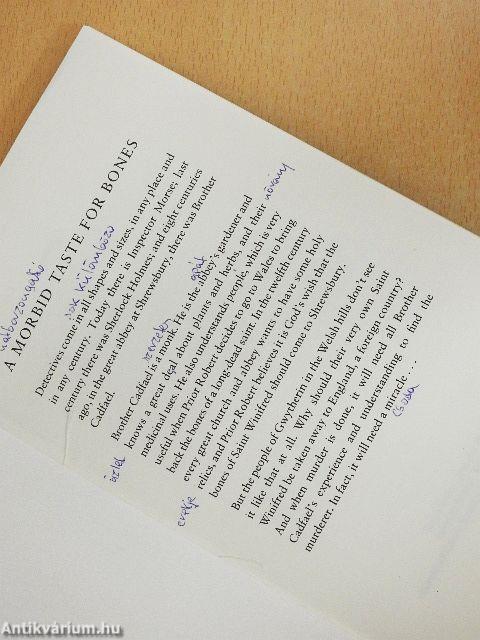 A MORBID TASTE FOR BONES
sok különböző
Detectives come in all shapes and sizes, in any place and
in any century. Today there is Inspector Morse; last
century there was Sherlock Holmes; and eight centuries
ago, in the great abbey at Shrewsbury, there was Brother
Cadfael.
szerzetes
apát
Brother Cadfael is a monk. He is the abbey's gardener and
knows a great deal about plants and herbs, and their
növény
medicinal uses. He also understands people, which is very
useful when Prior Robert decides to go to Wales to bring
back the bones of a long-dead saint. In the twelfth century
every great church and abbey wants to have some holy
relics, and Prior Robert believes it is God's wish that the
ereklye
bones of Saint Winifred should come to Shrewsbury.
But the people of Gwytherin in the Welsh hills don't see
it like that at all. Why should their very own Saint
Winifred be taken away to England, a foreign country?
And when murder is done, it will need all Brother
Cadfael's experience and understanding to find the
murderer. In fact, it will need a miracle . . .
csoda
Antikvárium.hu